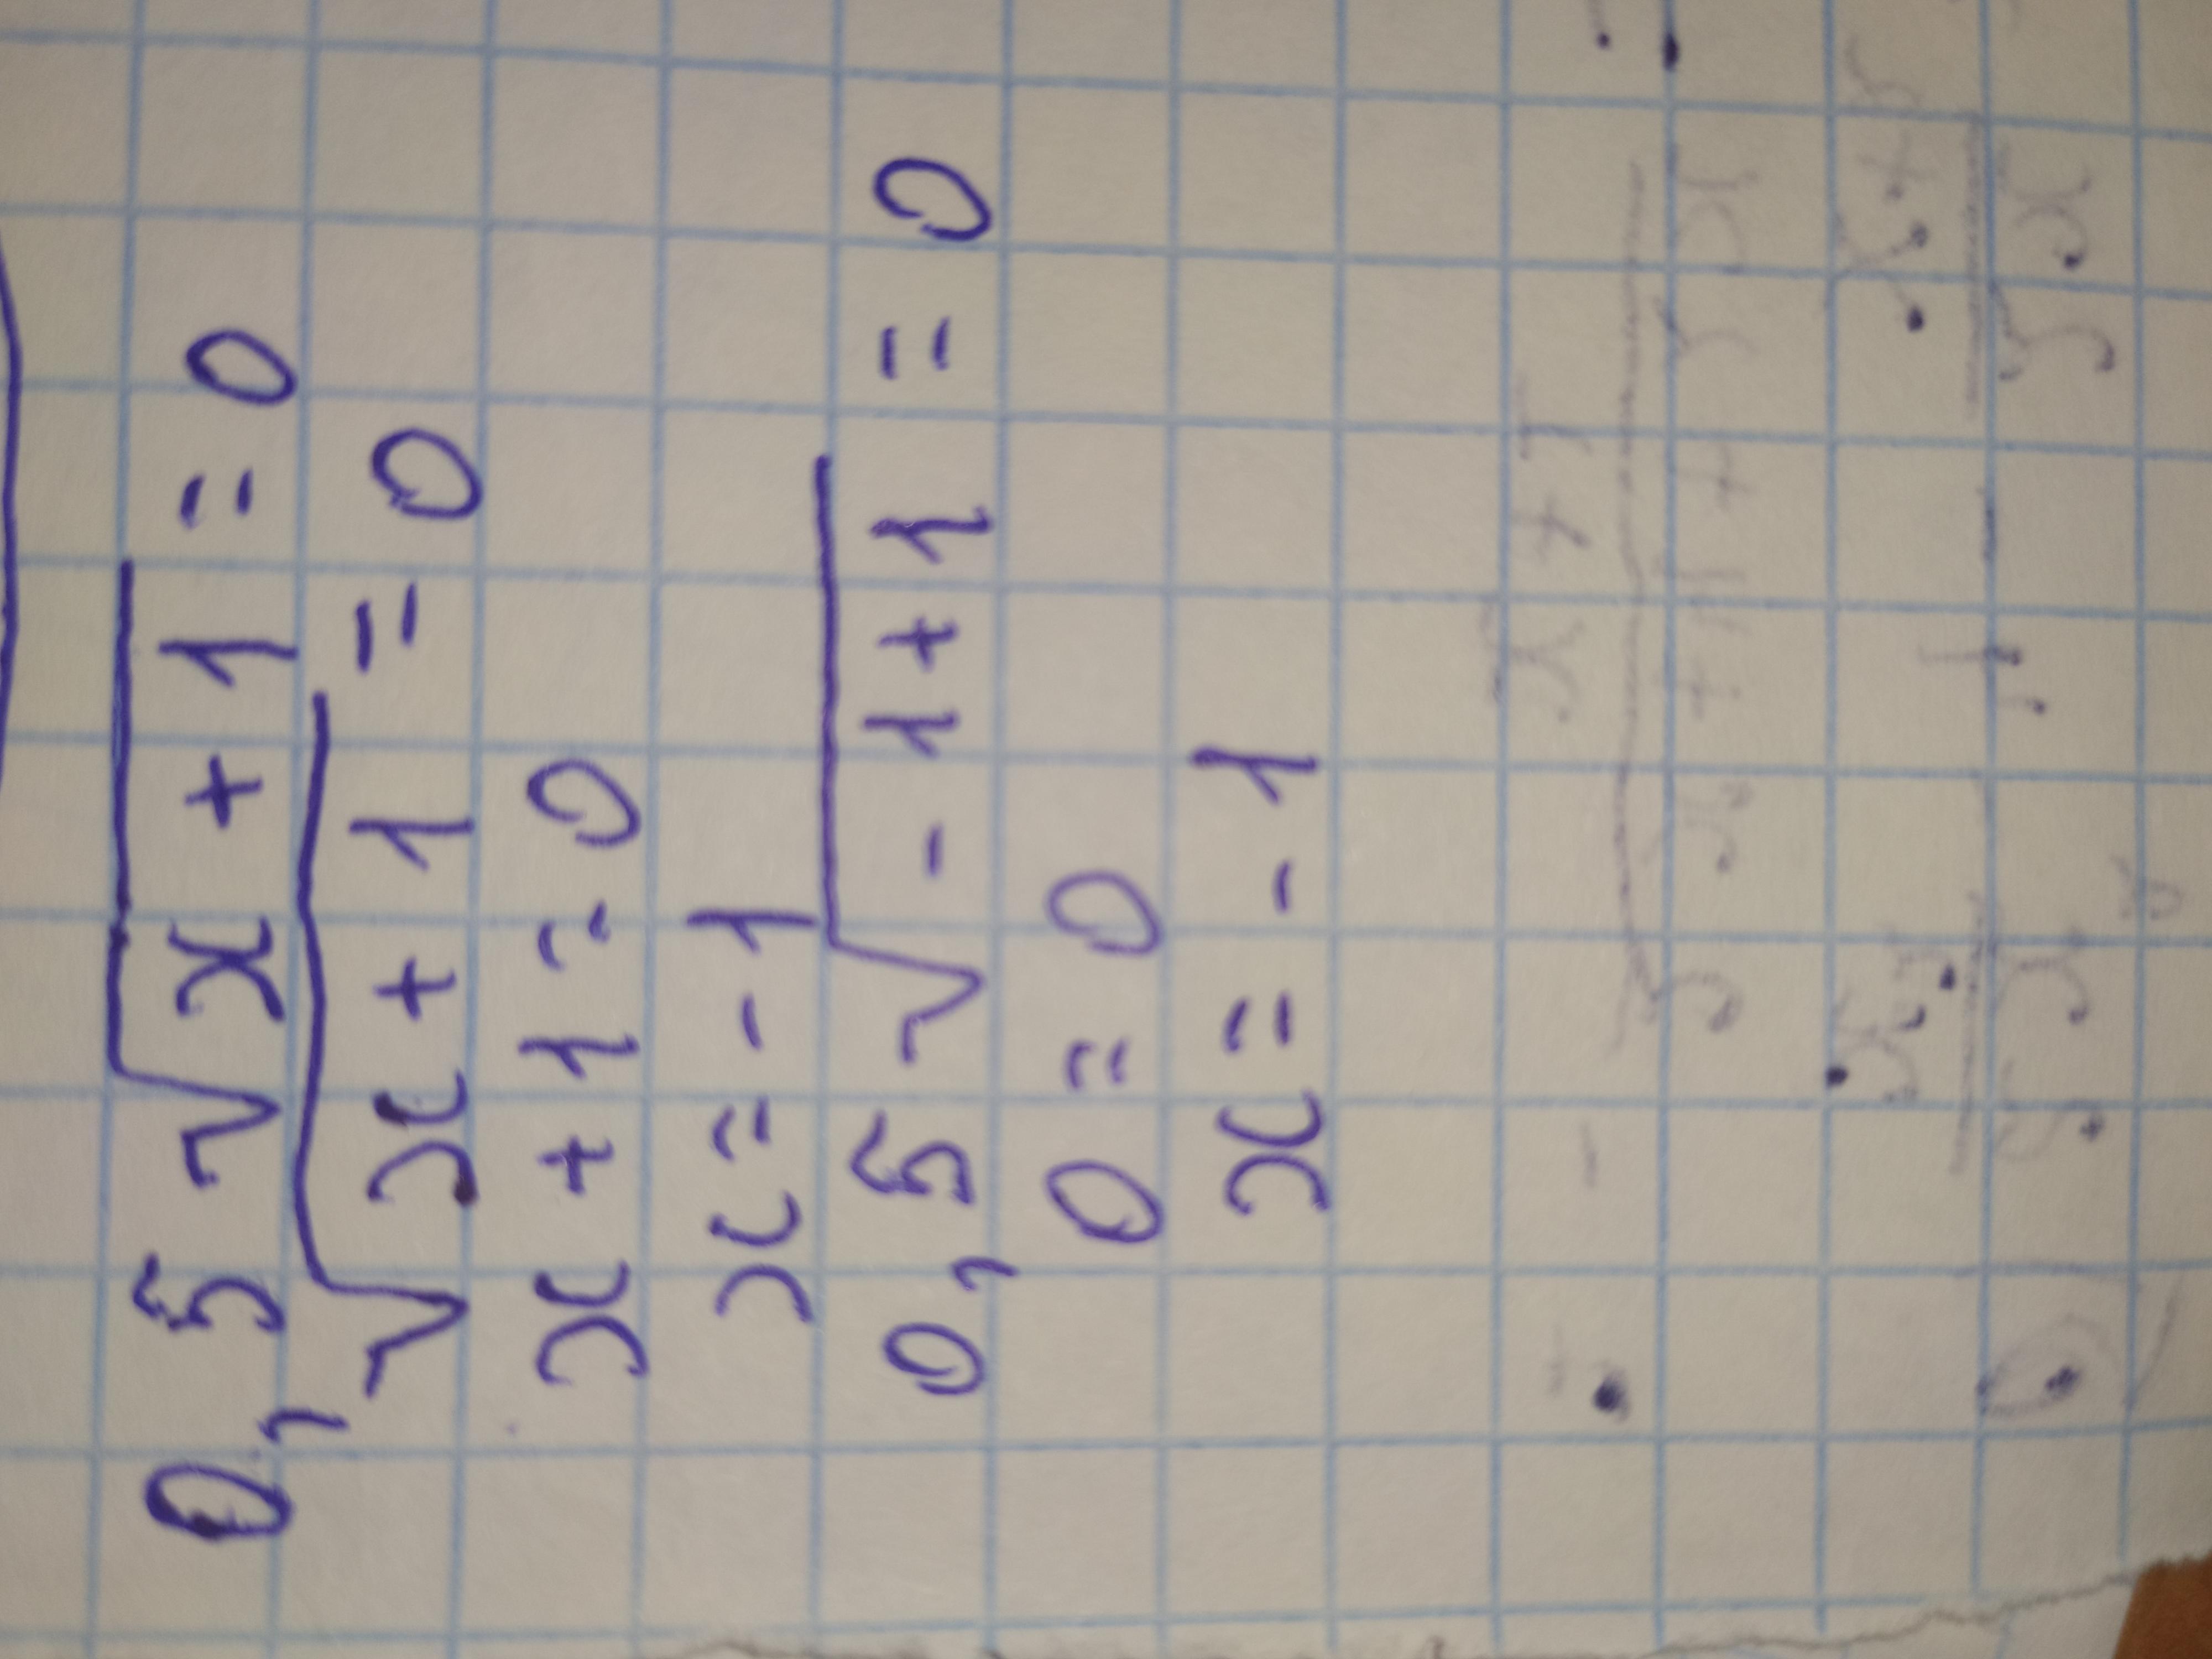 0,5√x+1=0
√x+1=0
x+1=0
x=-1
0,5√-1+1=0
0=0
x=-1